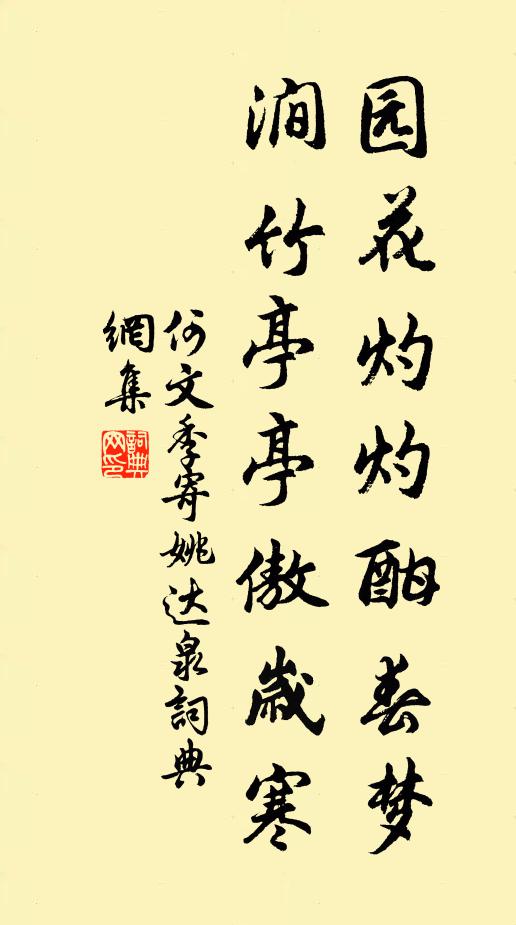 园花灼灼酣春梦
涧竹亭亭傲岁寒
何文季寄姚达泉詞典
網集
詞典网印